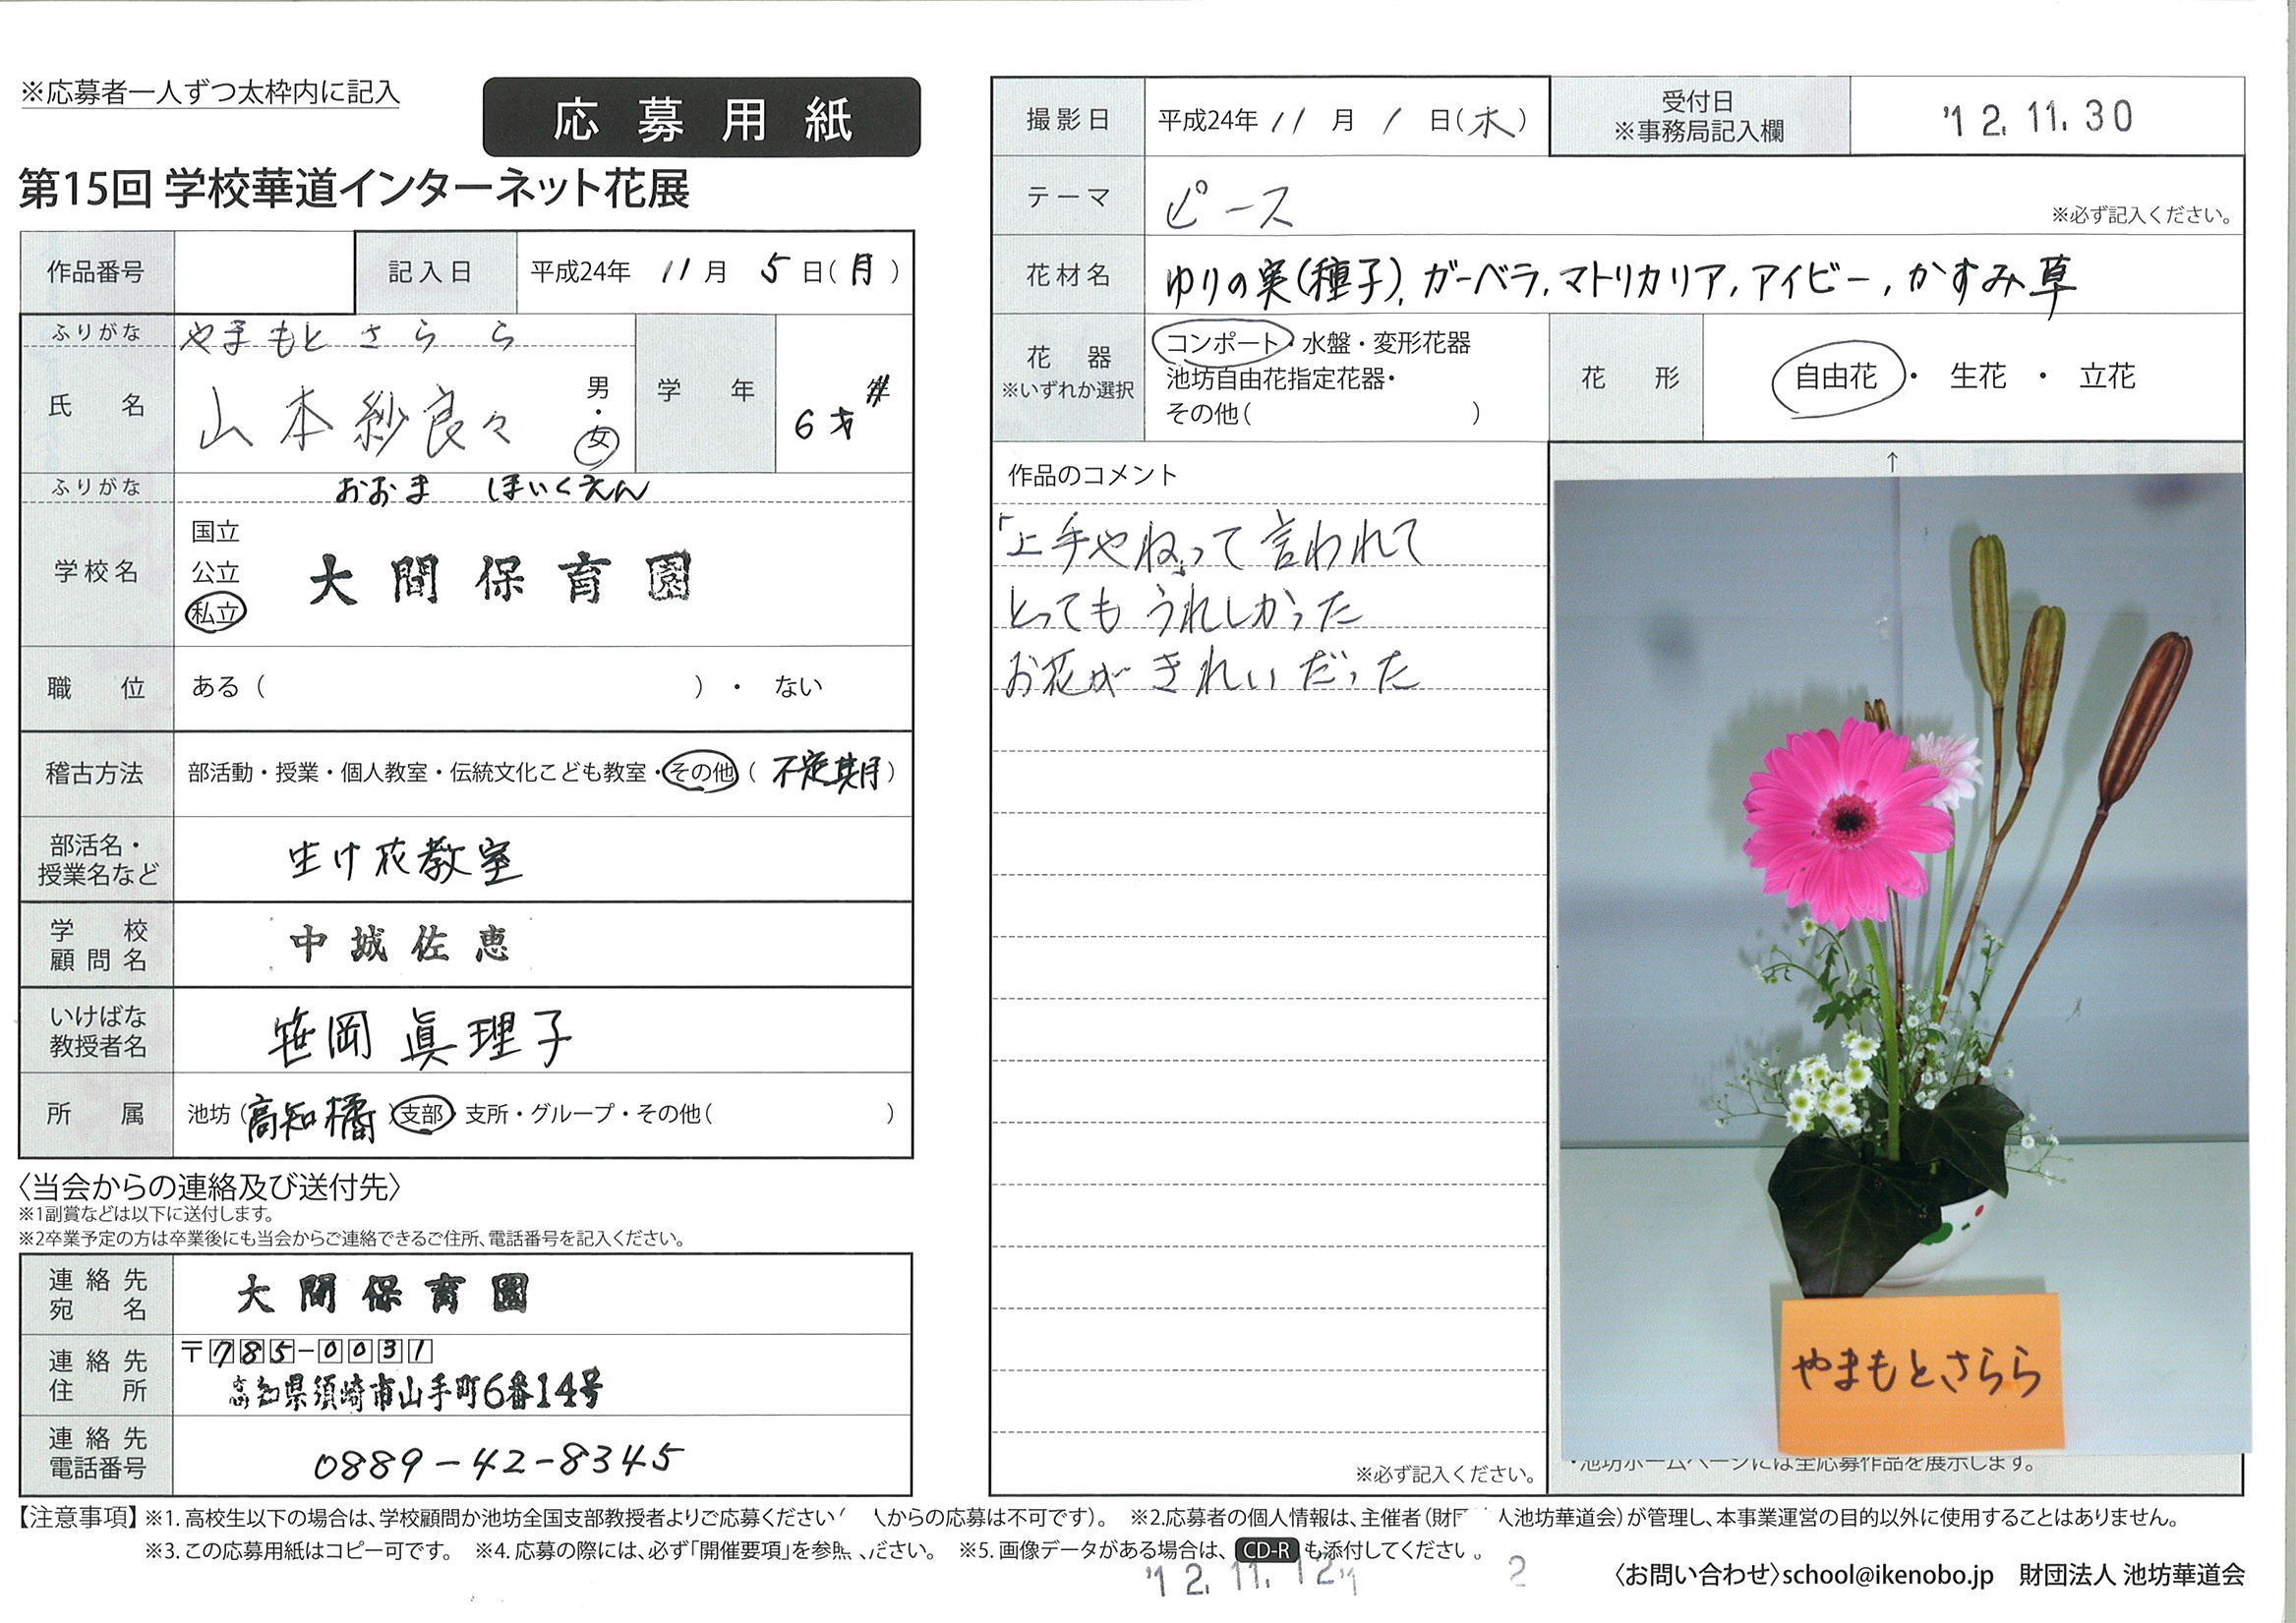 ※応募者一人ずつ太枠内に記入
応募用紙
第15回 学校華道インターネット花展
作品番号
記入日 平成24年 11月 5日(月)
ふりがな やまもと さらら
氏名 山本紗良々 男・女
学年 6才
ふりがな おおま ほいくえん
学校名 国立 公立 私立 大間保育園
職位 ある( )・ ない
稽古方法 部活動・授業・個人教室・伝統文化こども教室・その他(不定期)
部活名・授業名など 生け花教室
学校顧問名 中城佐恵
いけばな教授者名 笹岡 眞理子
所属 池坊(高知橘)支部・支所・グループ・その他( )
〈当会からの連絡及び送付先〉
※1副賞などは以下に送付します。
※2卒業予定の方は卒業後にも当会からご連絡できるご住所、電話番号を記入ください。
連絡先宛名 大間保育園
連絡先住所 〒785-0031
高知県須崎市山手町6番14号
連絡先電話番号 0889-42-8345
撮影日 平成24年 11月 1日(木)
受付日 ※事務局記入欄 '12.11.30
テーマ ピース
※必ず記入ください。
花材名 ゆりの実(種子), ガーベラ, マトリカリア, アイビー, かすみ草
花器 ※いずれか選択 コンポート・水盤・変形花器
池坊自由花指定花器・
その他( )
花形 自由花・生花・立花
作品のコメント
「上手やね」って言われて
とってもうれしかった
お花がきれいだった
※必ず記入ください。
↑
やまもとさらら
・池坊ホームページには全応募作品を展示します。
【注意事項】※1.高校生以下の場合は、学校顧問か池坊全国支部教授者よりご応募ください( 人からの応募は不可です)。 ※2.応募者の個人情報は、主催者(財団 人池坊華道会)が管理し、本事業運営の目的以外に使用することはありません。
※3.この応募用紙はコピー可です。 ※4.応募の際には、必ず「開催要項」を参照ください。 ※5.画像データがある場合は、CD-Rも添付してください。
'12.11.12
〈お問い合わせ〉school@ikenobo.jp 財団法人 池坊華道会